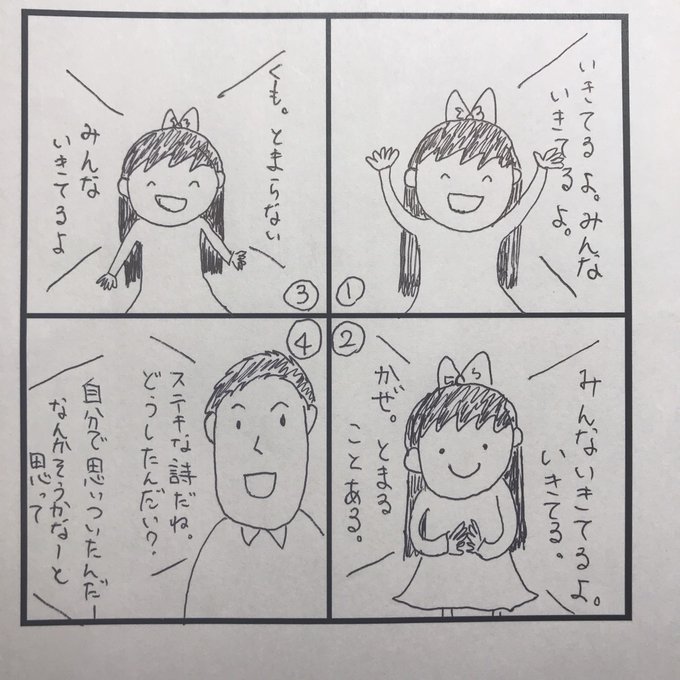 いきてるよ。みんな
いきてるよ。
①
みんないきてるよ。
いきてる。
かぜ。とまる
ことある。
②
くも。とまらない
みんな
いきてるよ
③
ステキな詩だね。
どうしたんだい?
自分で思いついたんだー
なんかそうかなーと
思って
④